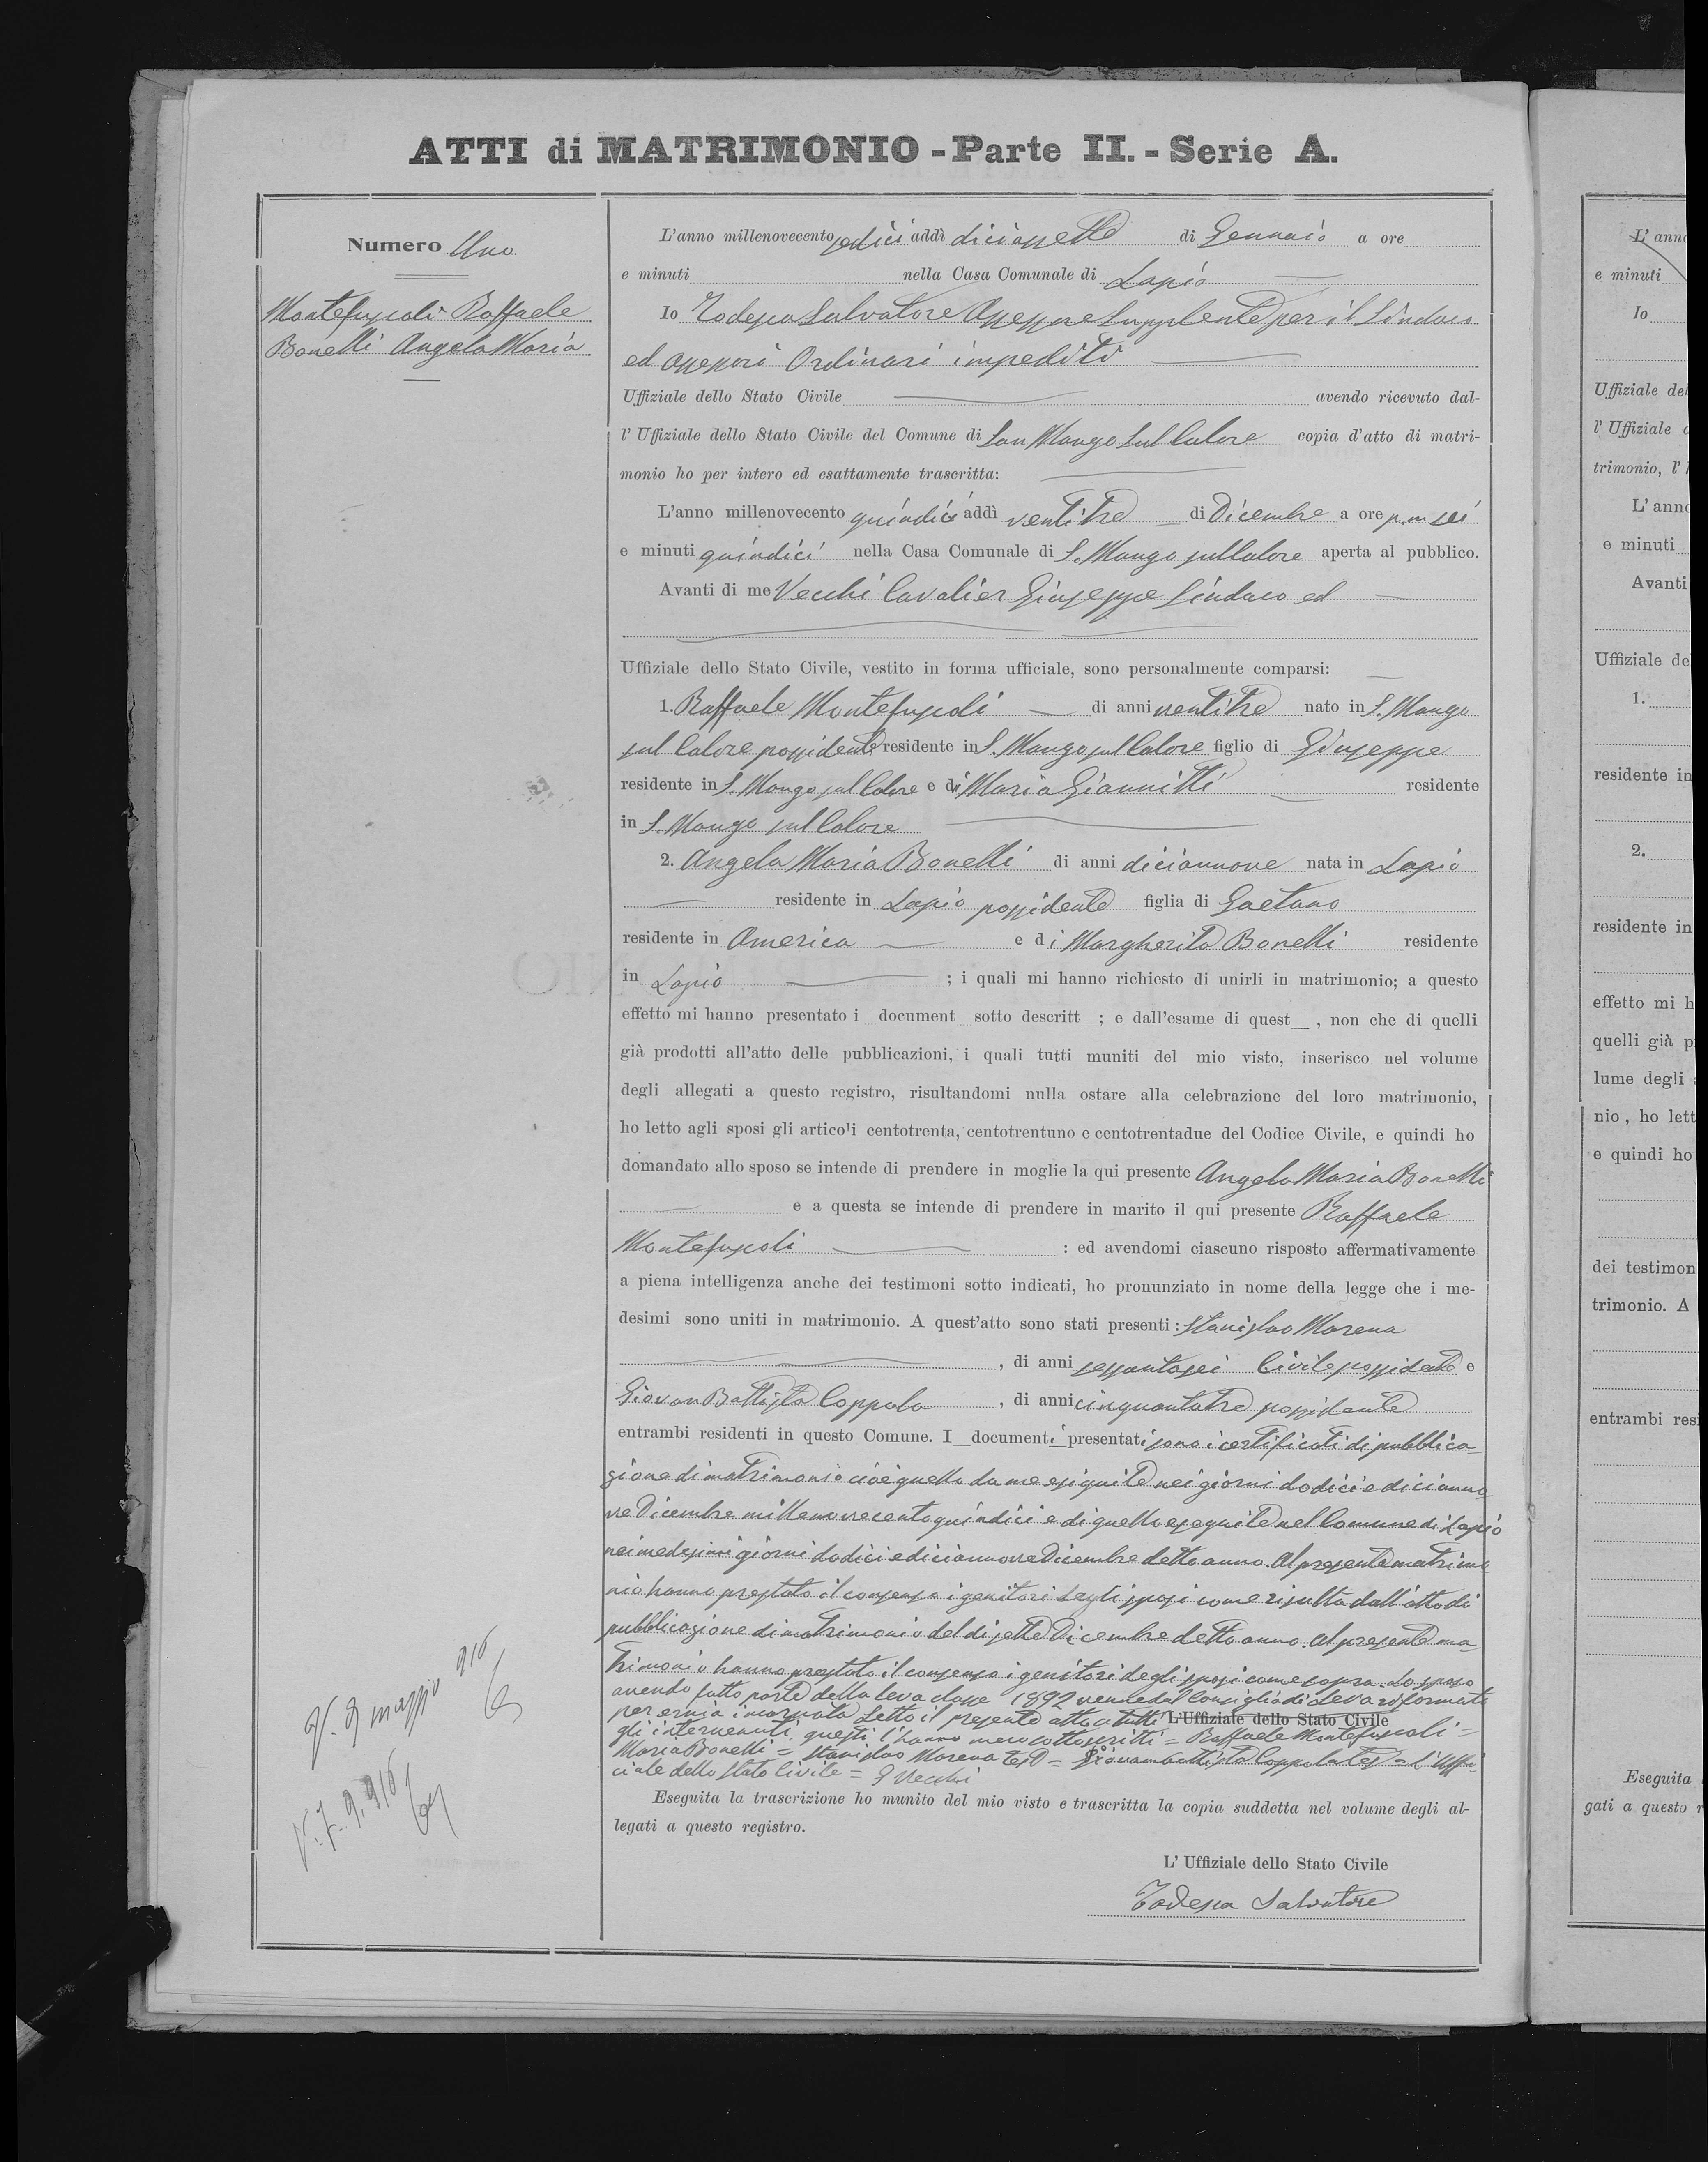 ATTI di MATRIMONIO - Parte II. - Serie A.
Numero Uno
Montefuscoli Raffaele
Bonelli Angela Maria
L'anno millenovecento sedici addì diciassette di Gennaio a ore
e minuti nella Casa Comunale di Lapio
Io Todesca Salvatore Assessore Supplente per il Sindaco
ed assessori Ordinari impediti
Uffiziale dello Stato Civile avendo ricevuto dal-
l'Uffiziale dello Stato Civile del Comune di San Mango Sul Calore copia d'atto di matri-
monio ho per intero ed esattamente trascritta:
L'anno millenovecento quindici addì ventitre di Dicembre a ore p.m sei
e minuti quindici nella Casa Comunale di S. Mango sul Calore aperta al pubblico.
Avanti di me Vecchi Cavalier Giuseppe Sindaco ed
Uffiziale dello Stato Civile, vestito in forma ufficiale, sono personalmente comparsi:
1. Raffaele Montefuscoli di anni ventitre nato in S. Mango
sul Calore possidente residente in S. Mango sul Calore figlio di Giuseppe
residente in S. Mango sul Calore e di Maria Giannitti residente
in S. Mango sul Calore
2. Angela Maria Bonelli di anni diciannove nata in Lapio
residente in Lapio possidente figlia di Gaetano
residente in America e di Margherita Bonelli residente
in Lapio ; i quali mi hanno richiesto di unirli in matrimonio; a questo
effetto mi hanno presentato i document sotto descritt ; e dall'esame di quest , non che di quelli
già prodotti all'atto delle pubblicazioni, i quali tutti muniti del mio visto, inserisco nel volume
degli allegati a questo registro, risultandomi nulla ostare alla celebrazione del loro matrimonio,
ho letto agli sposi gli articoli centotrenta, centotrentuno e centotrentadue del Codice Civile, e quindi ho
domandato allo sposo se intende di prendere in moglie la qui presente Angela Maria Bonelli
e a questa se intende di prendere in marito il qui presente Raffaele
Montefuscoli : ed avendomi ciascuno risposto affermativamente
a piena intelligenza anche dei testimoni sotto indicati, ho pronunziato in nome della legge che i me-
desimi sono uniti in matrimonio. A quest'atto sono stati presenti: Stanislao Morena
, di anni sessantasei Civile possidente e
Giovan Battista Coppola , di anni cinquantatre possidente
entrambi residenti in questo Comune. I documenti presentati sono i certificati di pubblica-
zione di matrimonio cioè quella da me eseguite nei giorni dodici e dicianno
ve Dicembre millenovecentoquindici e di quella eseguite nel Comune di Lapio
nei medesimi giorni dodici e diciannove Dicembre detto anno. Al presente matrimo
nio hanno prestato il consenso i genitori degli sposi come risulta dall'atto di
pubblicazione di matrimonio del dì sette Dicembre detto anno. Al presente ma-
trimonio hanno prestato il consenso i genitori degli sposi come sopra. Lo sposo
avendo fatto parte della leva classe 1892 venne dal Consiglio di Leva riformato
per ernia Letto il presente atto a tutti L'Uffiziale dello Stato Civile
gli intervenuti, questi l'hanno meco sottoscritti = Raffaele Montefuscoli =
Maria Bonelli = Stanislao Morena test = Giovambattista Coppola tes = L'Uffi-
ciale dello Stato Civile = G Vecchi
Eseguita la trascrizione ho munito del mio visto e trascritta la copia suddetta nel volume degli al-
legati a questo registro.
L'Uffiziale dello Stato Civile
Todesca Salvatore
V. 9 maggio 916
V. 7. 9. 916
L'anno
e minuti
Io
Uffiziale del
l'Uffiziale
trimonio, l'
L'anno
e minuti
Avanti
Uffiziale de
1.
residente in
2.
residente in
effetto mi h
quelli già p
lume degli
nio, ho lett
e quindi ho
dei testimon
trimonio. A
entrambi resi
Eseguita
gati a questo r